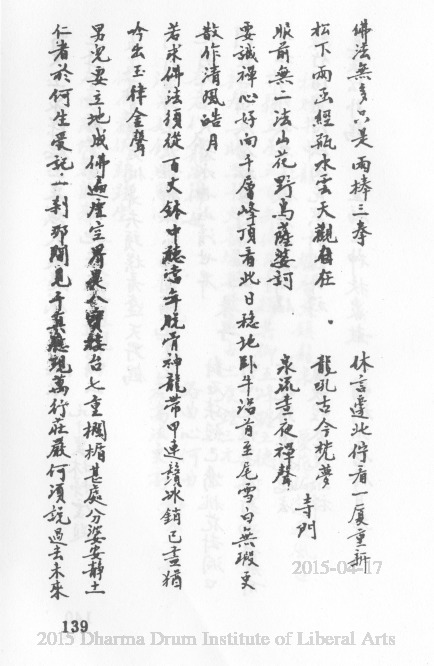 佛法無多只是兩棒三拳　休言此停看一廈重新
松下兩函經瓶水雲天觀自在　龍吼古今恍夢
眼前無二法山花野鳥薩婆訶　泉流晝夜禪聲
寺門
要識禪心好向千層峰頂看此日穩地卧牛首至尾雪白無瑕更
散作清風皓月
若求佛法須從百丈鉢中聽當年脫神龍帶甲連鬚冰銷已盡猶
吟出玉律金聲
男兒要立地成佛遍虛空界是寶樓台七重欄楯甚處分娑婆靜土
仁者於何生愛說一剎那間見千真萬行莊嚴何須說過去未來
2015-04-17
139
2015 Dharma Drum Institute of Liberal Arts